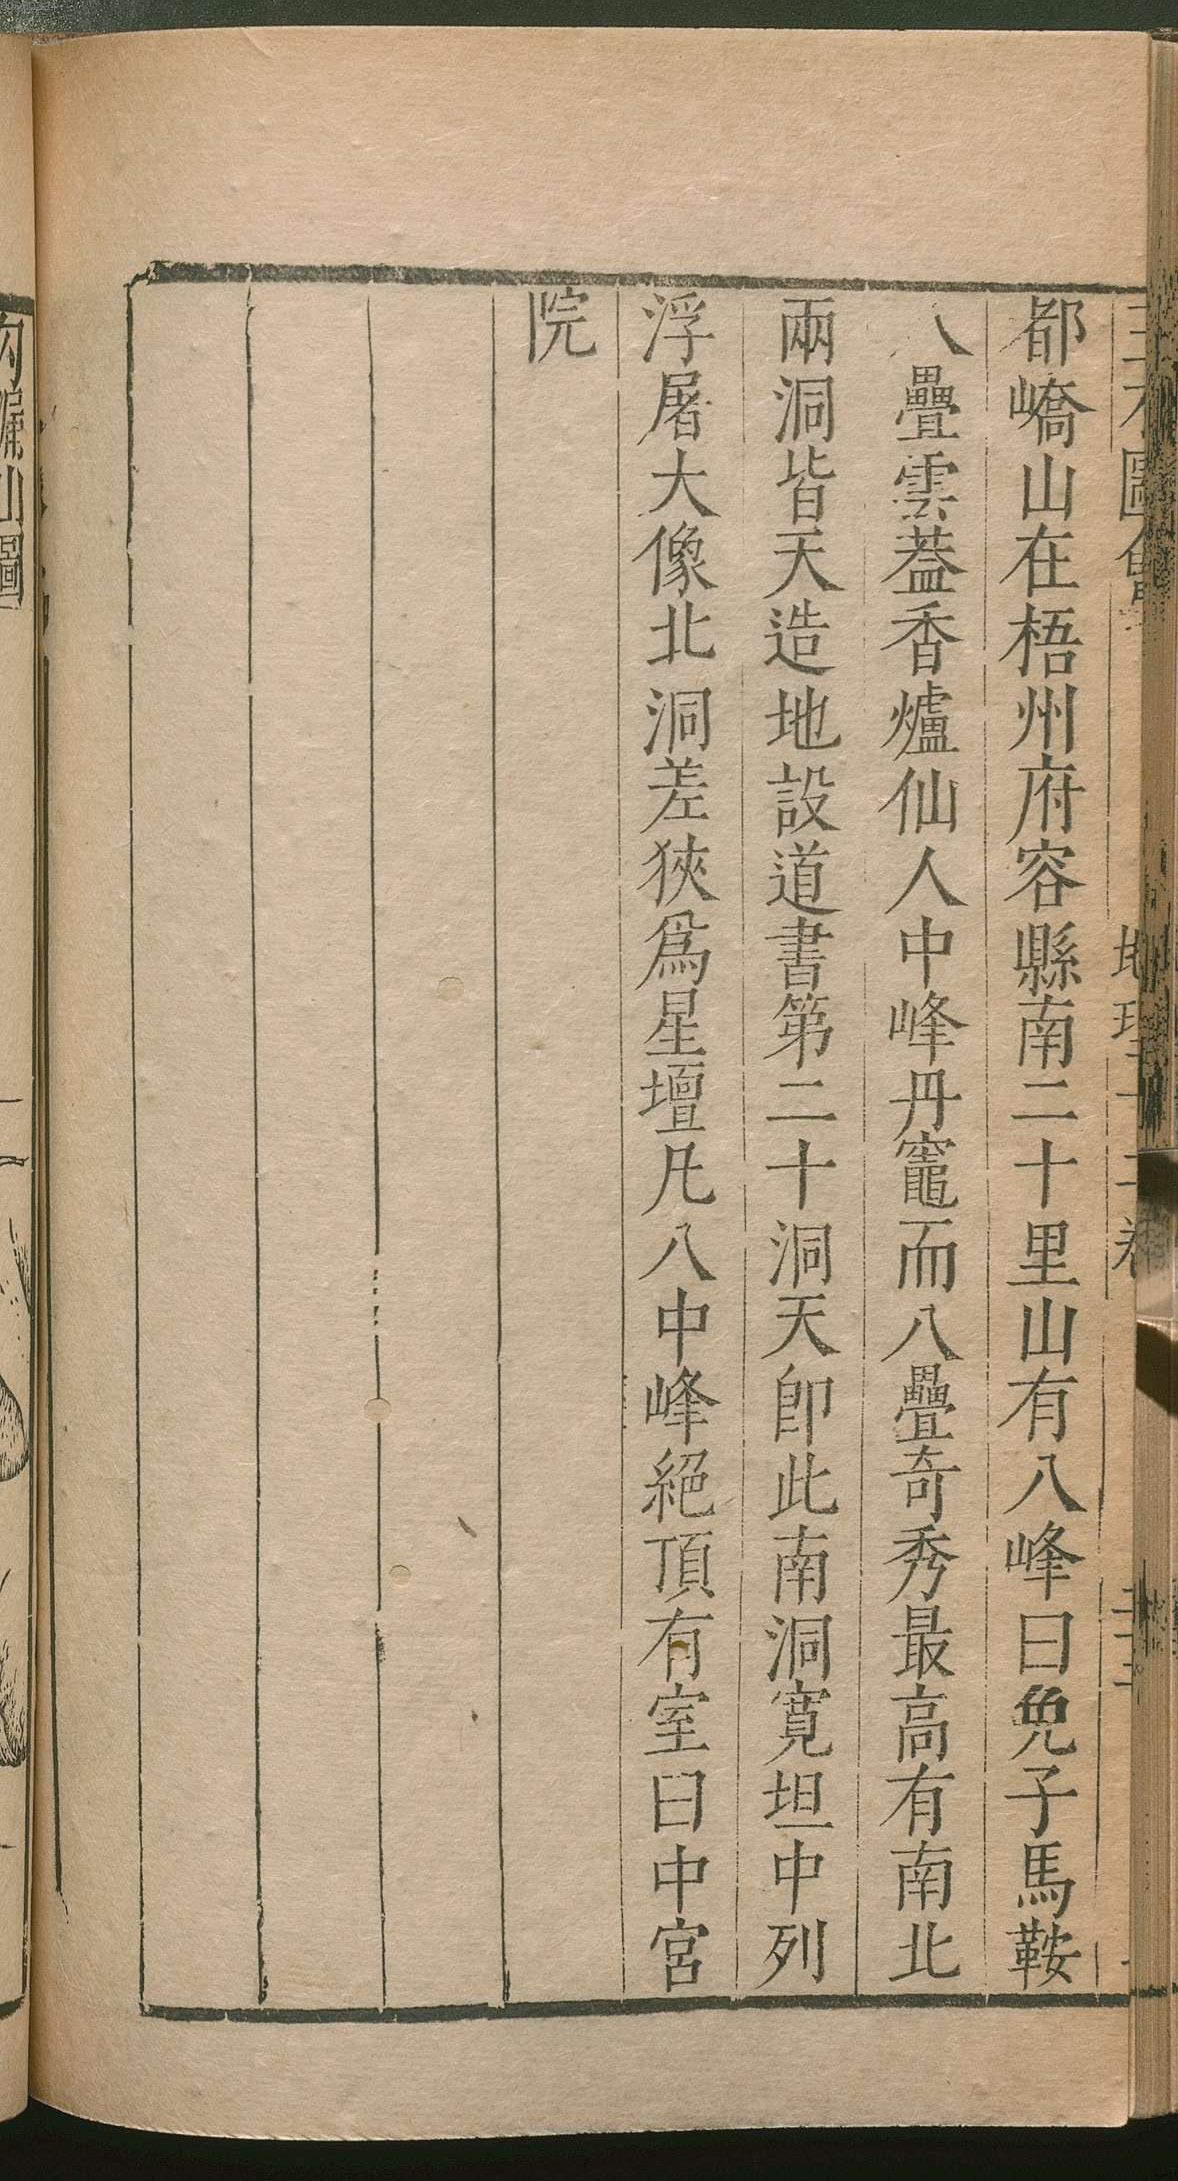 都嶠山在梧州府容縣南二十里山有八峰曰兔子馬鞍
八疊雲葢香爐仙人中峰丹竈而八疊奇秀最高有南北
兩洞皆天造地設道書第二十洞天卽此南洞寬坦中列
浮屠大像北洞差狹爲星壇凡八中峰絕頂有室曰中宮
院
勾漏山圖